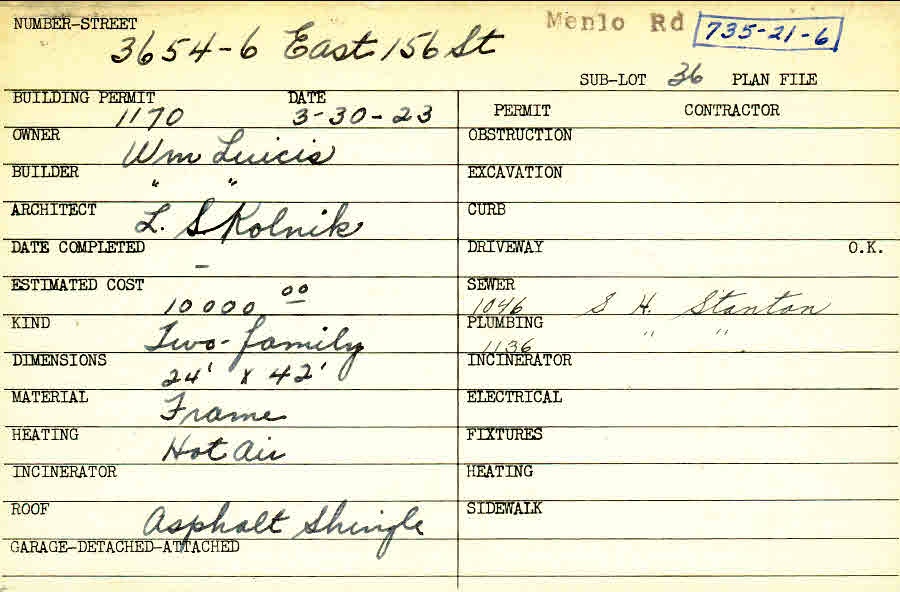 NUMBER-STREET
Menlo Rd 735-21-6
3654-6 East 156 St
SUB-LOT 36 PLAN FILE
BUILDING PERMIT DATE
1170 3-30-23
OWNER
Wm Luicis
BUILDER
" "
ARCHITECT
L. Skolnik
DATE COMPLETED
–
ESTIMATED COST
10000 00
KIND
Two-family
DIMENSIONS
24' x 42'
MATERIAL
Frame
HEATING
Hot Air
INCINERATOR
ROOF
Asphalt Shingle
GARAGE-DETACHED-ATTACHED
PERMIT CONTRACTOR
OBSTRUCTION
EXCAVATION
CURB
DRIVEWAY O.K.
SEWER
1046 S H. Stanton
PLUMBING
1136 " "
INCINERATOR
ELECTRICAL
FIXTURES
HEATING
SIDEWALK